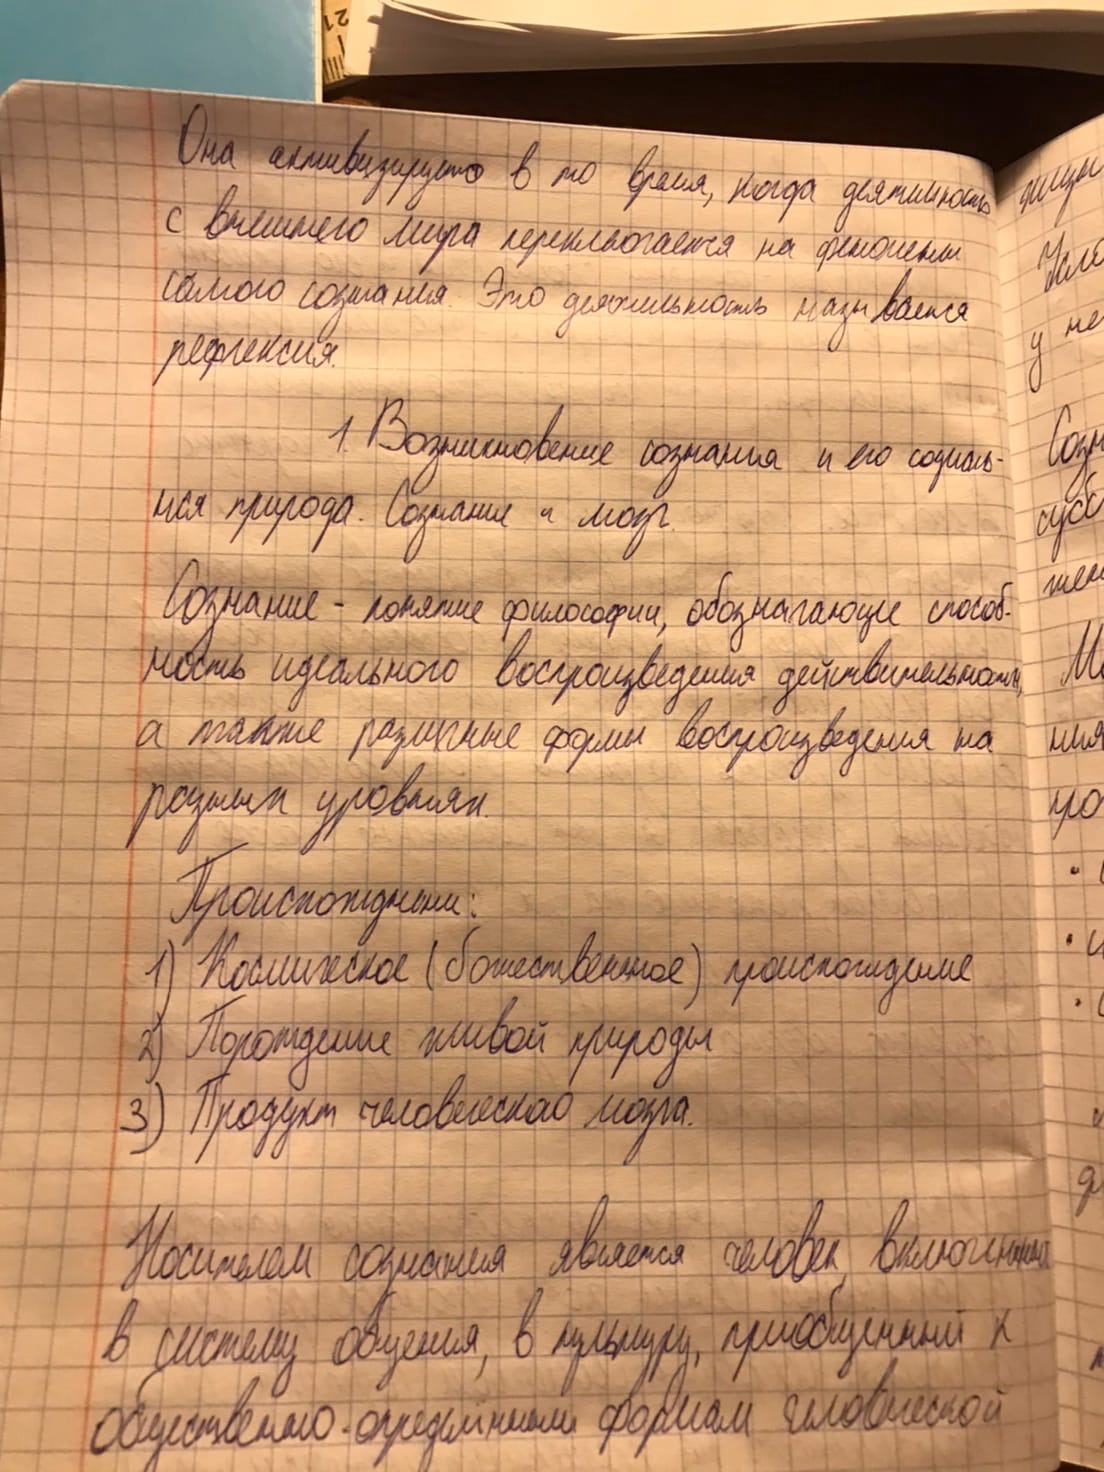 Она активизируется в то время, когда деятельность
с внешнего мира переключается на феномены
самого сознания. Это деятельность называется
рефлексия.
1. Возникновение сознания и его социаль-
ная природа. Сознание и мозг.
Сознание - понятие философии, обозначающие способ-
ность идеального воспроизведения действительности,
а также различные формы воспроизведения на
разных уровнях.
Происхождении:
1) Космическое (божественное) происхождение
2) Порождение живой природы
3) Продукт человеческого мозга.
Носителем сознания является человек, включенный
в систему общения, в культуру, приобщенный к
общественно-определённым формам человеческой
у не
Созн
ния
про
21